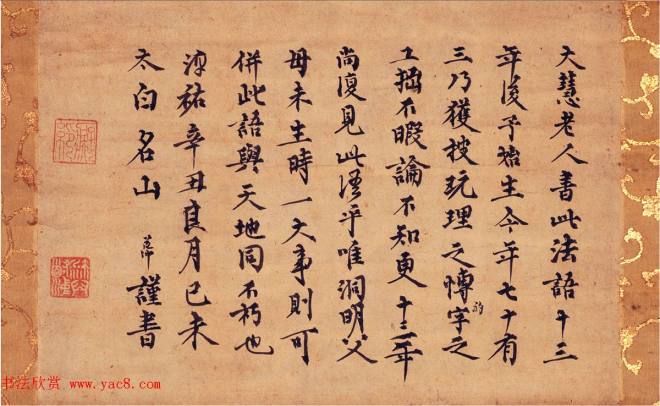 大慧老人書此法語十三
年後予始生今年七十有
三乃獲披玩理之愽的字之
工拙不暇論不知更十年
尚復見此語乎唯洞明父
母未生時一大事則可
併此語與天地同不朽也
淳祐辛丑良月己未
太白名山 謹書
书法欣赏 www.yac8.com